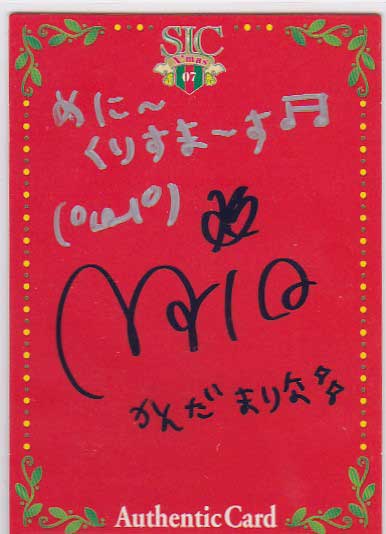 SIC
X'mas
07
めに〜
くりすま〜す♫
(^ω^)
Maria
かんだまりな
Authentic Card